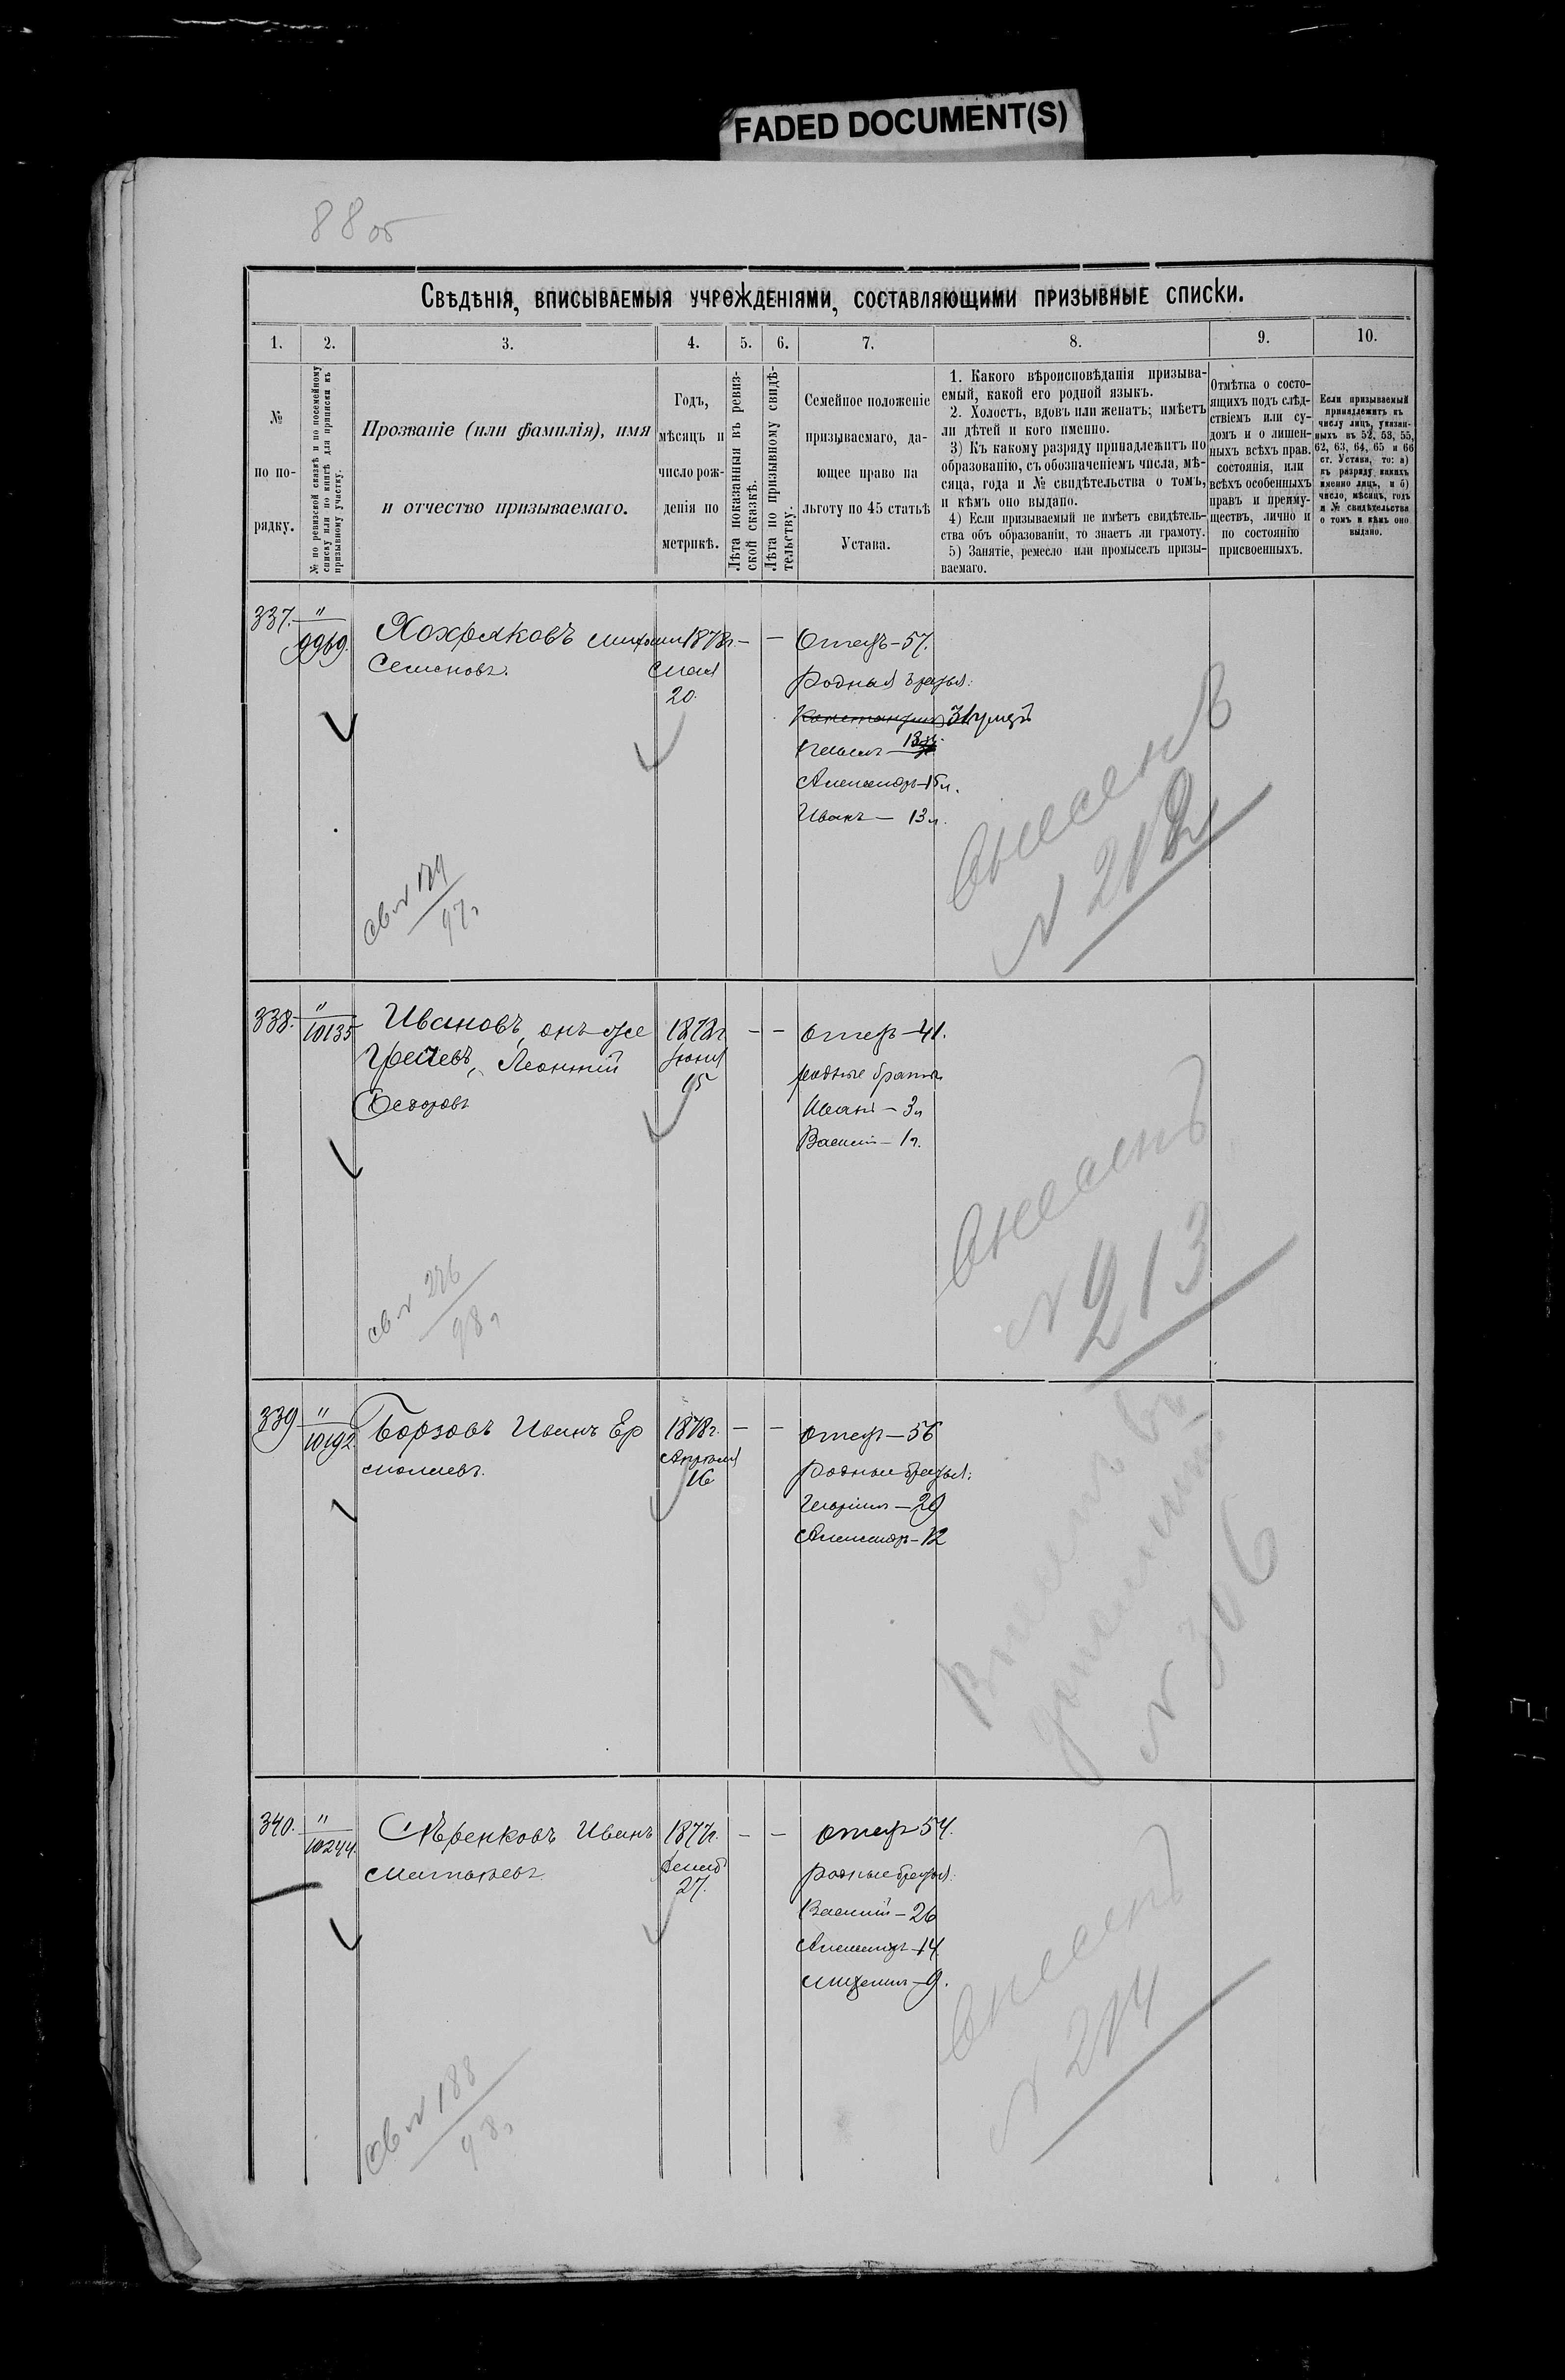 FADED DOCUMENT(S)
88 об
Свѣдѣнія, вписываемыя учрежденіями, составляющими призывные списки.
1. 2. 3. 4. 5. 6. 7. 8. 9. 10.
№
по по-
рядку.
№ по ревизской сказкѣ и по посемейному
списку или по книгѣ для приписки къ
призывному участку.
Прозваніе (или фамилія), имя
и отчество призываемаго.
Годъ,
мѣсяцъ и
число рож-
денія по
метрикѣ.
Лѣта показанныя въ ревиз-
ской сказкѣ.
Лѣта по призывному свидѣ-
тельству.
Семейное положеніе
призываемаго, да-
ющее право на
льготу по 45 статьѣ
Устава.
1. Какого вѣроисповѣданія призыва-
емый, какой его родной языкъ.
2. Холостъ, вдовъ или женатъ; имѣетъ
ли дѣтей и кого именно.
3) Къ какому разряду принадлежитъ по
образованію, съ обозначеніемъ числа, мѣ-
сяца, года и № свидѣтельства о томъ,
и кѣмъ оно выдано.
4) Если призываемый не имѣетъ свидѣтель-
ства объ образованіи, то знаетъ ли грамоту.
5) Занятіе, ремесло или промыселъ призы-
ваемаго.
Отмѣтка о состо-
ящихъ подъ слѣд-
ствіемъ или су-
домъ и о лишен-
ныхъ всѣхъ прав.
состоянія, или
всѣхъ особенныхъ
правъ и преиму-
ществъ, лично и
по состоянію
присвоенныхъ.
Если призываемый
принадлежитъ къ
числу лицъ, указан-
ныхъ въ 52, 53, 55,
62, 63, 64, 65 и 66
ст. Устава, то: а)
къ разряду какихъ
именно лицъ, и б)
число, мѣсяцъ, годъ
и № свидѣтельства
о томъ и кѣмъ оно
выдано.
337. " 9969.
Хохряковъ Михаилъ
Семеновъ.
1878г.
Мая
20.
Отецъ - 57.
Родныя братья:
Константинъ 31 умеръ
Павелъ - 18
Александръ - 15 л.
Иванъ - 13 л.
внесенъ
№ 212
св № 179
97г
338. " 10135
Ивановъ, онъ же
Грачевъ, Леонтій
Федоровъ
1878г
Іюня
15
отецъ - 41.
родные братья
Иванъ - 3 л
Василій - 1 г.
внесенъ
№ 213
св № 226
98г
339 " 10192.
Борзовъ Иванъ Ер
молаевъ.
1878г.
Апрѣля
16
отецъ - 56
Родные братья:
29
Александръ - 12
Внесенъ въ
№ 306
340. " 10244.
Сѣренковъ Иванъ
Матвѣевъ
1877г.
27.
отецъ 54.
родные братья:
Василій - 26
Александръ - 14.
Михаилъ - 9.
внесенъ
№ 214
св № 188
98г